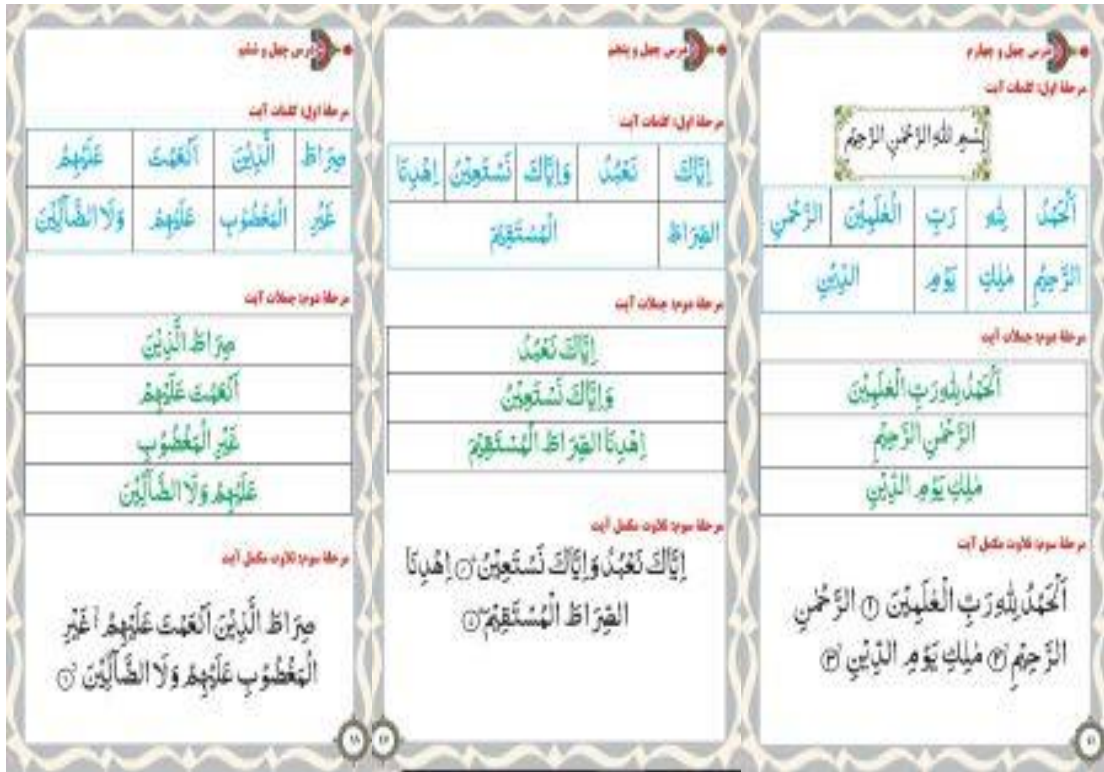 درس چهل و چهارم
مرحلهٔ اول: کلمات آیت
بِسْمِ اللهِ الرَّحْمٰنِ الرَّحِيْمِ
اَلْحَمْدُ لِلّٰهِ رَبِّ الْعٰلَمِيْنَ الرَّحْمٰنِ
الرَّحِيْمِ مٰلِكِ يَوْمِ الدِّيْنِ
مرحلهٔ دوم: جملات آیت
اَلْحَمْدُ لِلّٰهِ رَبِّ الْعٰلَمِيْنَ
الرَّحْمٰنِ الرَّحِيْمِ
مٰلِكِ يَوْمِ الدِّيْنِ
مرحلهٔ سوم: تلاوت مکمل آیت
اَلْحَمْدُ لِلّٰهِ رَبِّ الْعٰلَمِيْنَ ۱ الرَّحْمٰنِ
الرَّحِيْمِ ۲ مٰلِكِ يَوْمِ الدِّيْنِ ۳
درس چهل و پنجم
مرحلهٔ اول: کلمات آیت
اِيَّاكَ نَعْبُدُ وَاِيَّاكَ نَسْتَعِيْنُ اِهْدِنَا
الصِّرَاطَ الْمُسْتَقِيْمَ
مرحلهٔ دوم: جملات آیت
اِيَّاكَ نَعْبُدُ
وَاِيَّاكَ نَسْتَعِيْنُ
اِهْدِنَا الصِّرَاطَ الْمُسْتَقِيْمَ
مرحلهٔ سوم: تلاوت مکمل آیت
اِيَّاكَ نَعْبُدُ وَاِيَّاكَ نَسْتَعِيْنُ اِهْدِنَا
الصِّرَاطَ الْمُسْتَقِيْمَ
درس چهل و ششم
مرحلهٔ اول: کلمات آیت
صِرَاطَ الَّذِيْنَ اَنْعَمْتَ عَلَيْهِمْ
غَيْرِ الْمَغْضُوْبِ عَلَيْهِمْ وَلَا الضَّآلِّيْنَ
مرحلهٔ دوم: جملات آیت
صِرَاطَ الَّذِيْنَ
اَنْعَمْتَ عَلَيْهِمْ
غَيْرِ الْمَغْضُوْبِ
عَلَيْهِمْ وَلَا الضَّآلِّيْنَ
مرحلهٔ سوم: تلاوت مکمل آیت
صِرَاطَ الَّذِيْنَ اَنْعَمْتَ عَلَيْهِمْ غَيْرِ
الْمَغْضُوْبِ عَلَيْهِمْ وَلَا الضَّآلِّيْنَ